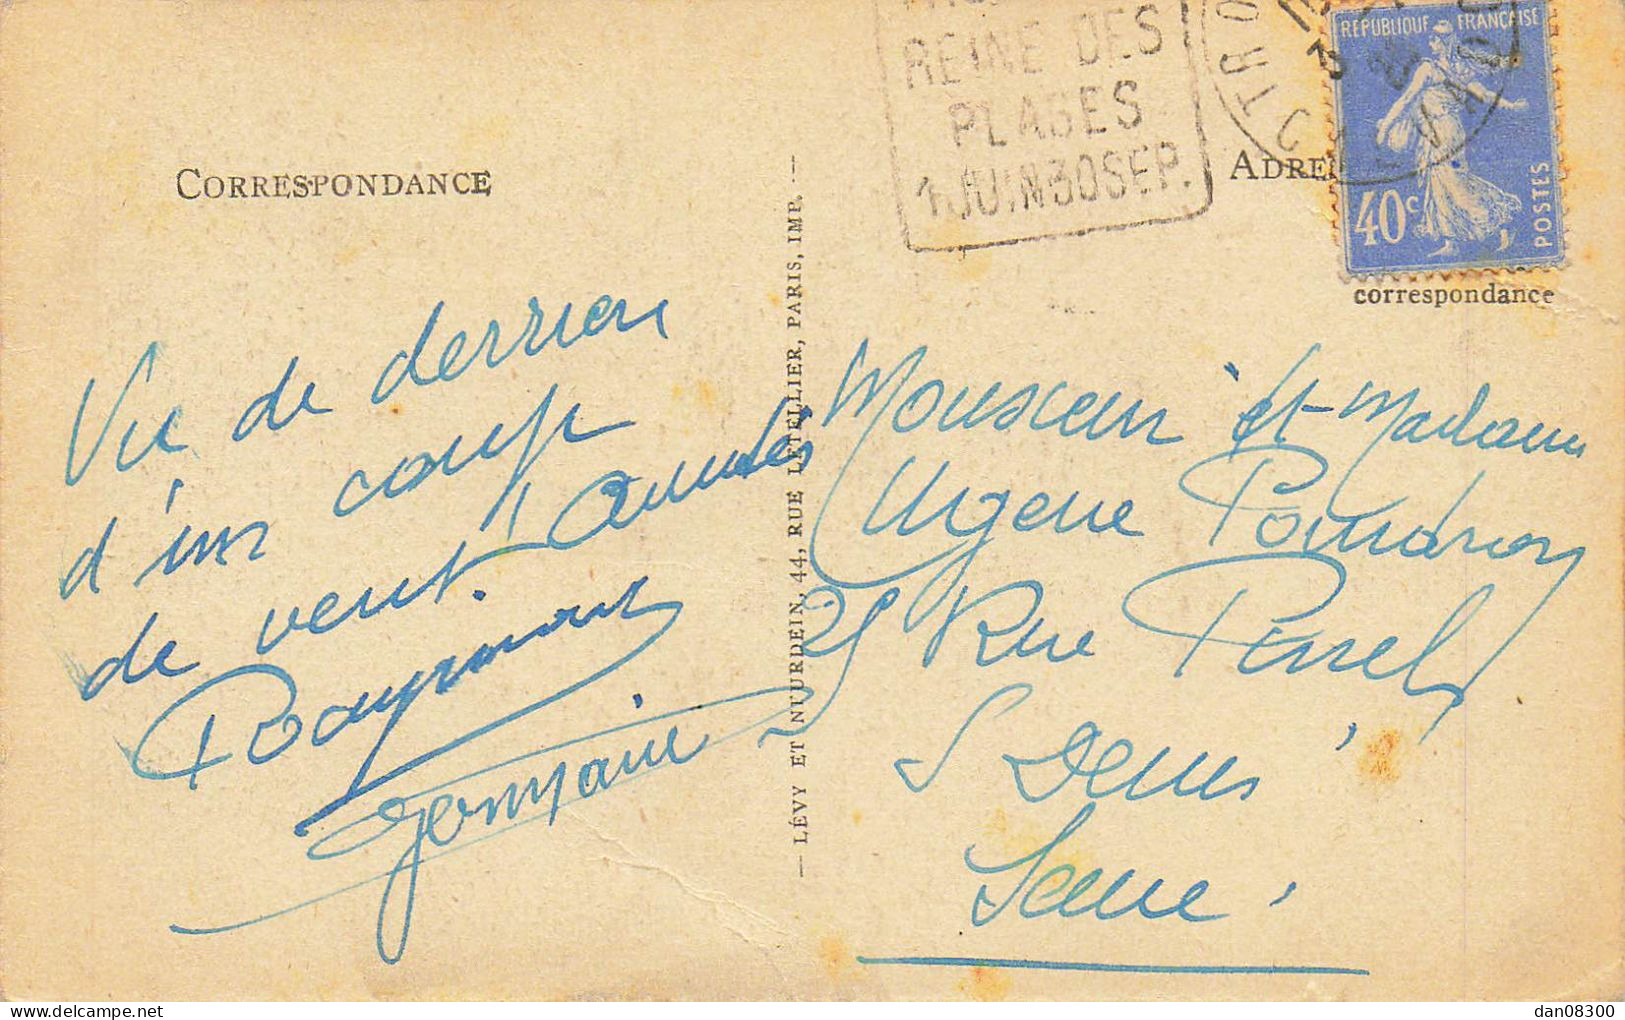 REINE DES
PLAGES
1 JUIN 30 SEP.
REPUBLIQUE FRANÇAISE
40c
POSTES
TRO
CALVADOS
CORRESPONDANCE
ADRE
correspondance
Vu de derrier
d'un coup
de vent.
Raymond
Germaine
— LÉVY ET NEURDEIN, 44, RUE LETELLIER, PARIS, IMP. —
Monsieur et Madame
Eugene
25 Rue Pinel
S Denis
Seine
dan08300